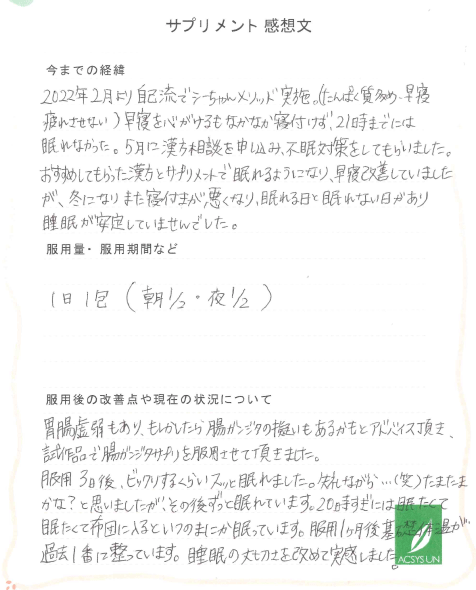 サプリメント 感想文
今までの経緯
2022年2月より自己流でシーちゃんメソッド実施。(たんぱく質多め・早寝
疲れさせない)早寝を心がけるもなかなか寝付けず、21時までには
眠れなかった。5月に漢方相談を申し込み、不眠対策をしてもらいました。
おすすめしてもらった漢方とサプリメントで眠れるようになり、早寝改善していました
が、冬になりまた寝付きが悪くなり、眠れる日と眠れない日があり
睡眠が安定していませんでした。
服用量・服用期間など
1日1包(朝1/2・夜1/2)
服用後の改善点や現在の状況について
胃腸虚弱もあり、もしかしたら腸カンジタの疑いもあるかもとアドバイス頂き、
試作品で腸カンジタサプリを服用させて頂きました。
服用3日後、ビックリするくらいスッと眠れました。失礼ながら…(笑)たまたま
かな?と思いましたが、その後ずっと眠れています。20時すぎには眠たくて
眠たくて布団に入るといつのまにか眠っています。服用1ヶ月後基礎体温が
過去1番に整っています。睡眠の大切さを改めて実感しました。
ACSYS UN